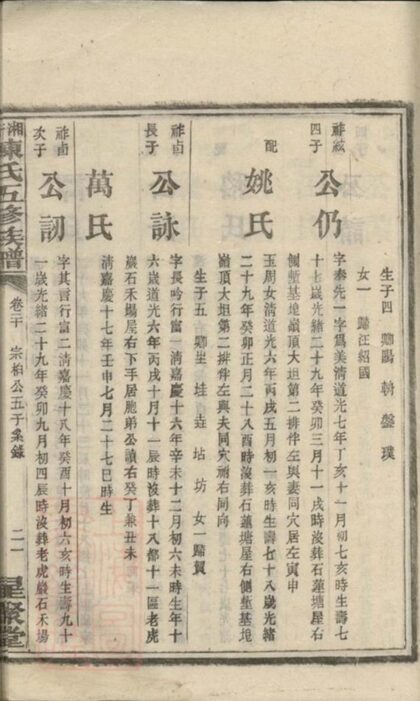 生子四 卿 賜 斡 盤 璞
女一 歸汪紹國
祚絃四子 公仍
字奉先一字爲美清道光七年丁亥十一月初七亥時生壽七
十七歲光緒二十九年癸卯三月十一戌時沒葬石蓮塘屋右
側塹基埢嶺頂大坦第二排伴左與妻同穴居左寅申
配 姚氏
玉周女清道光六年丙戌五月初一亥時生壽七十八歲光緒
二十九年癸卯正月二十八酉時沒葬石蓮塘屋右側塹基埢
嶺頂大坦第二排伴左與夫同穴祔右同向
生子五 卿 垕 垚 坫 坊 女一歸賀
祚卣長子 公詠
字長吟行富一清嘉慶十六年辛未十二月初六未時生年十
六歲道光六年丙戌十月十一辰時沒葬十八都十一區老虎
巖石禾場屋右下手居胞弟公讀右癸丁兼丑未
萬氏
清嘉慶十七年壬申七月二十七巳時生
祚卣次子 公訒
字其言行富二清嘉慶十八年癸酉十月初六亥時生壽九十
一歲光緒二十九年癸卯九月初四辰時沒葬老虎巖石禾場
湘 陳氏五修族譜
卷二十 宗柏公五子系錄
二一
星聚堂